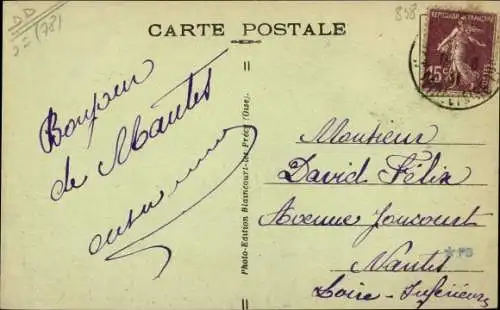 DD
(78)
CARTE POSTALE
858
REPUBLIQUE FRANÇAISE
15c
POSTES
Bonjour
de Mantes
Photo-Edition Blaincourt-les-Précy (Oise).
Monsieur
David Félix
Avenue Joncourt
Nantes
Loire-Inférieure